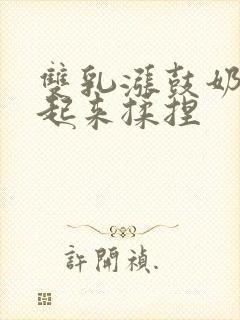 雙乳漲鼓奶
起來揉捏
許開禎.